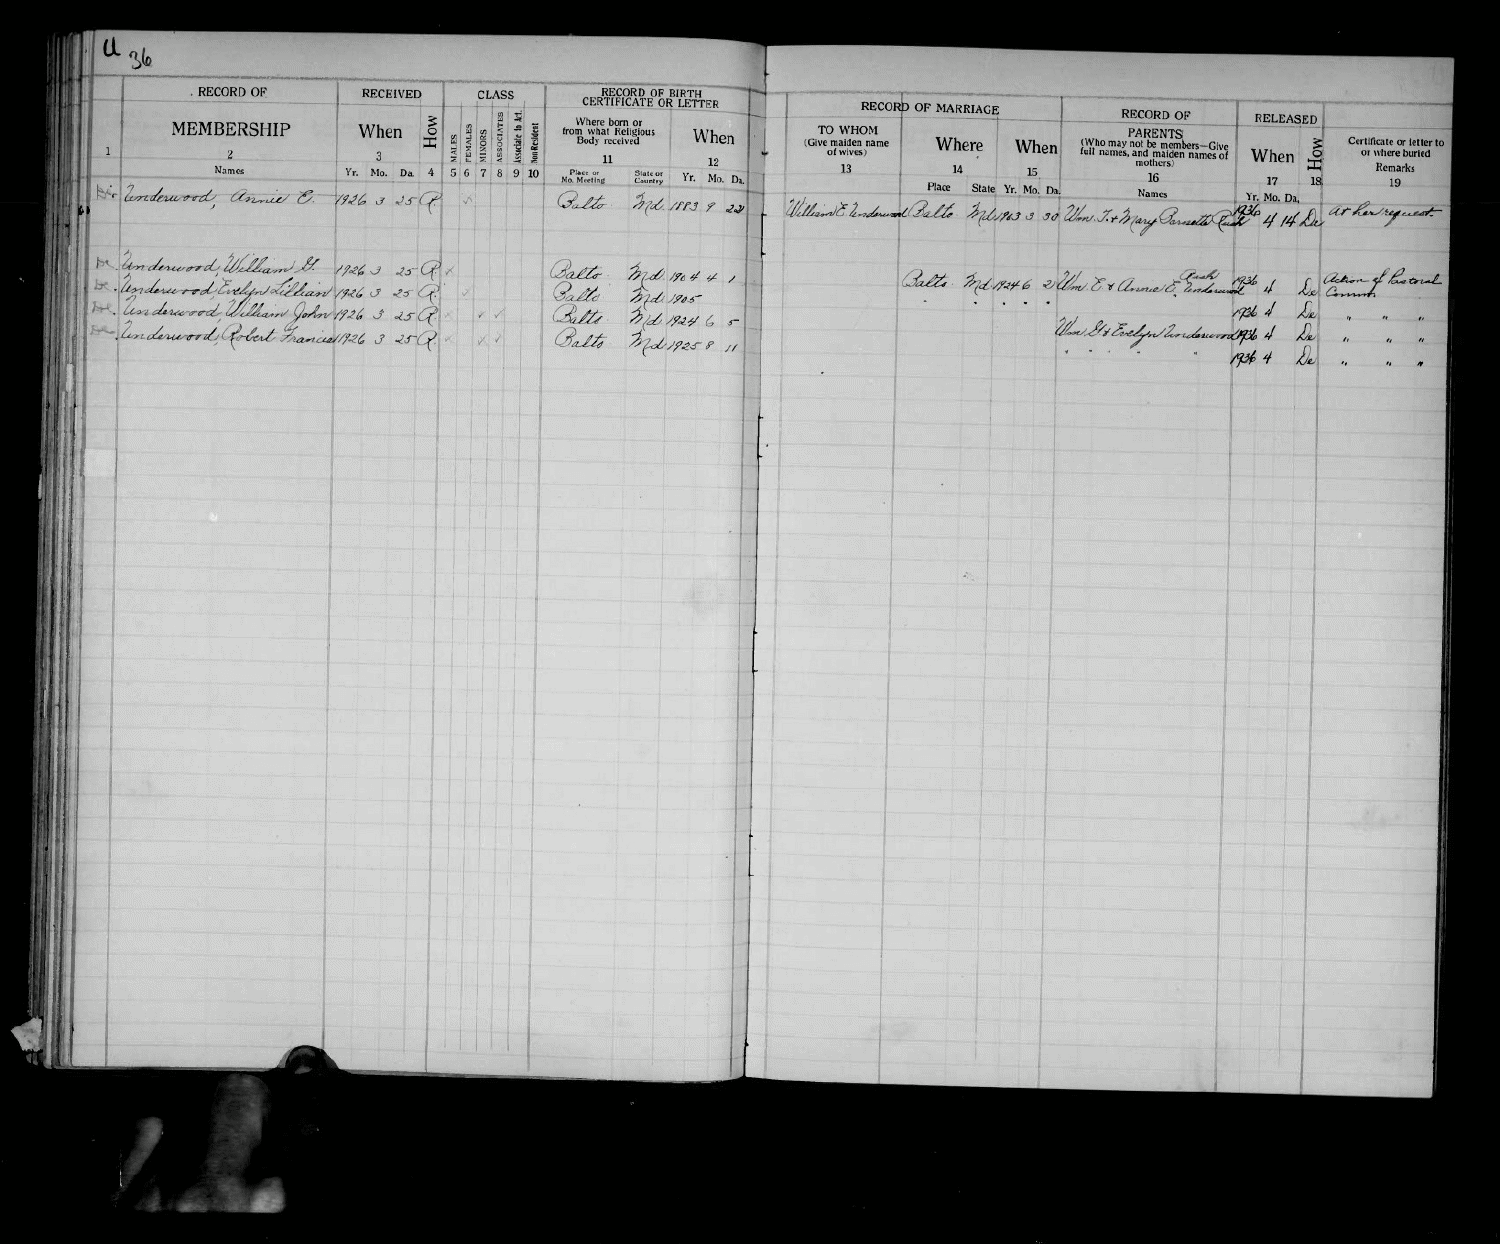 U 36
RECORD OF RECEIVED CLASS RECORD OF BIRTH CERTIFICATE OR LETTER RECORD OF MARRIAGE RECORD OF RELEASED
MEMBERSHIP When How MALES FEMALES MINORS ASSOCIATES Associate to Act. Non Resident Where born or from what Religious Body received When TO WHOM (Give maiden name of wives) Where When PARENTS (Who may not be members—Give full names, and maiden names of mothers) When How Certificate or letter to or where buried Remarks
1 2 3 4 5 6 7 8 9 10 11 12 13 14 15 16 17 18 19
Names Yr. Mo. Da. Place or Mo. Meeting State or Country Yr. Mo. Da. Place State Yr. Mo. Da. Names Yr. Mo. Da.
Underwood, Annie E. 1926 3 25 R. ✓ Balto Md 1883 9 22 William E Underwood Balto Md 1903 3 30 Wm T. & Mary Rush 1936 4 14 De At her request.
Underwood, William G. 1926 3 25 R. ✓ Balto. Md 1904 4 1 Balto. Md 1924 6 2 Wm E & Annie E. Rush Underwood 1936 4 De Action of Pastoral Comm
Underwood, Evelyn Lillian 1926 3 25 R. ✓ Balto Md 1905 " " " " 1936 4 De " " "
Underwood, William John 1926 3 25 R. ✓ ✓ ✓ Balto Md 1924 6 5 Wm G & Evelyn Underwood 1936 4 De " " "
Underwood, Robert Francis 1926 3 25 R. ✓ ✓ ✓ Balto Md 1925 8 11 " " " " 1936 4 De " " "